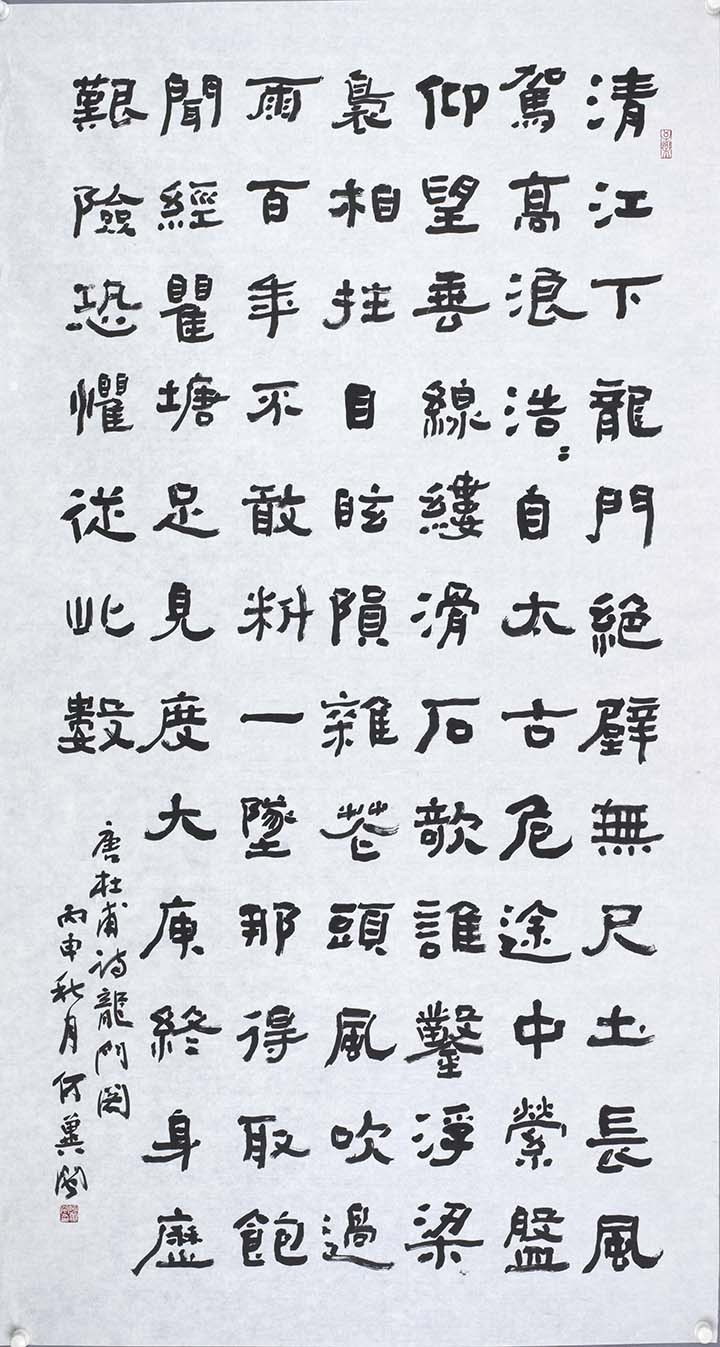 清江下龍門絕壁無尺土長風
駕高浪浩〻自太古危途中縈盤
仰望垂線縷滑石欹誰鑿浮梁
裊相拄目眩隕雜花頭風吹過
雨百年不敢料一墜那得取飽
聞經瞿塘足見度大庾終身歷
艱險恐懼從此數
唐杜甫诗龍门阁
丙申秋月何